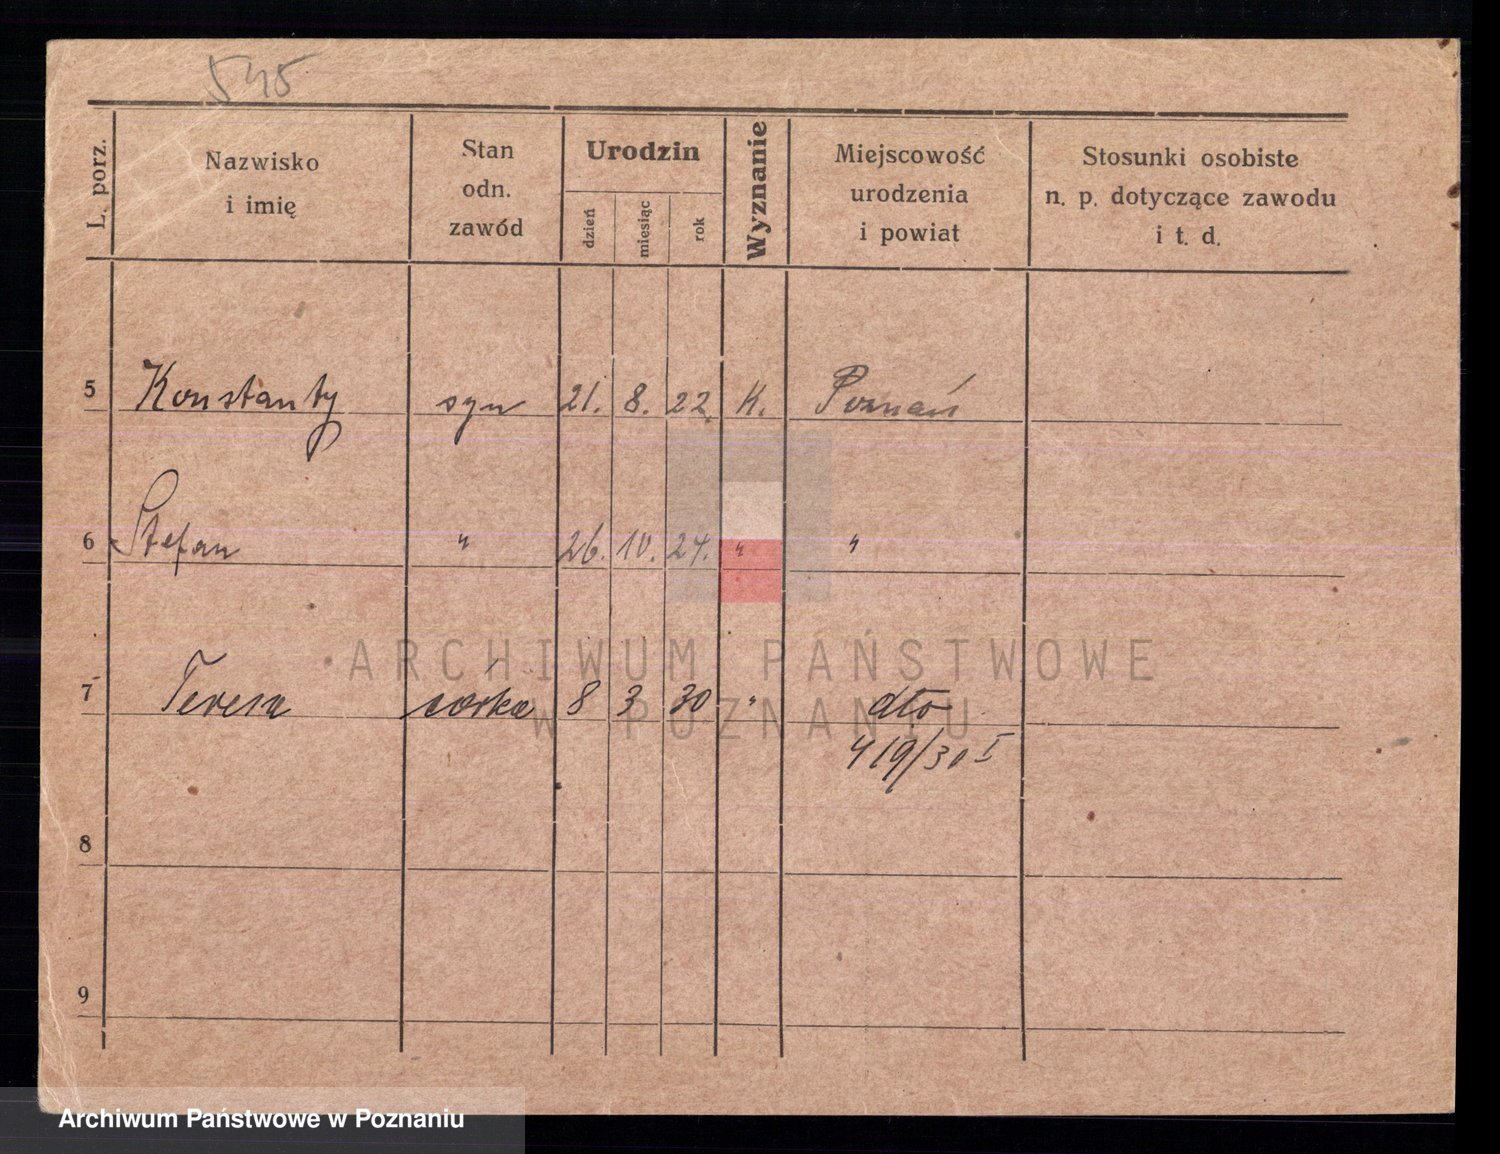 545
L. porz.
Nazwisko
i imię
Stan
odn.
zawód
Urodzin
dzień
miesiąc
rok
Wyznanie
Miejscowość
urodzenia
i powiat
Stosunki osobiste
n. p. dotyczące zawodu
i t. d.
5 Konstanty syn 21. 8. 22. K. Poznań
6 Stefan " 26. 10. 24. " "
7 Teresa córka 8 3 30 " dto
419/30 I
8
9
ARCHIWUM PAŃSTWOWE
W POZNANIU
Archiwum Państwowe w Poznaniu